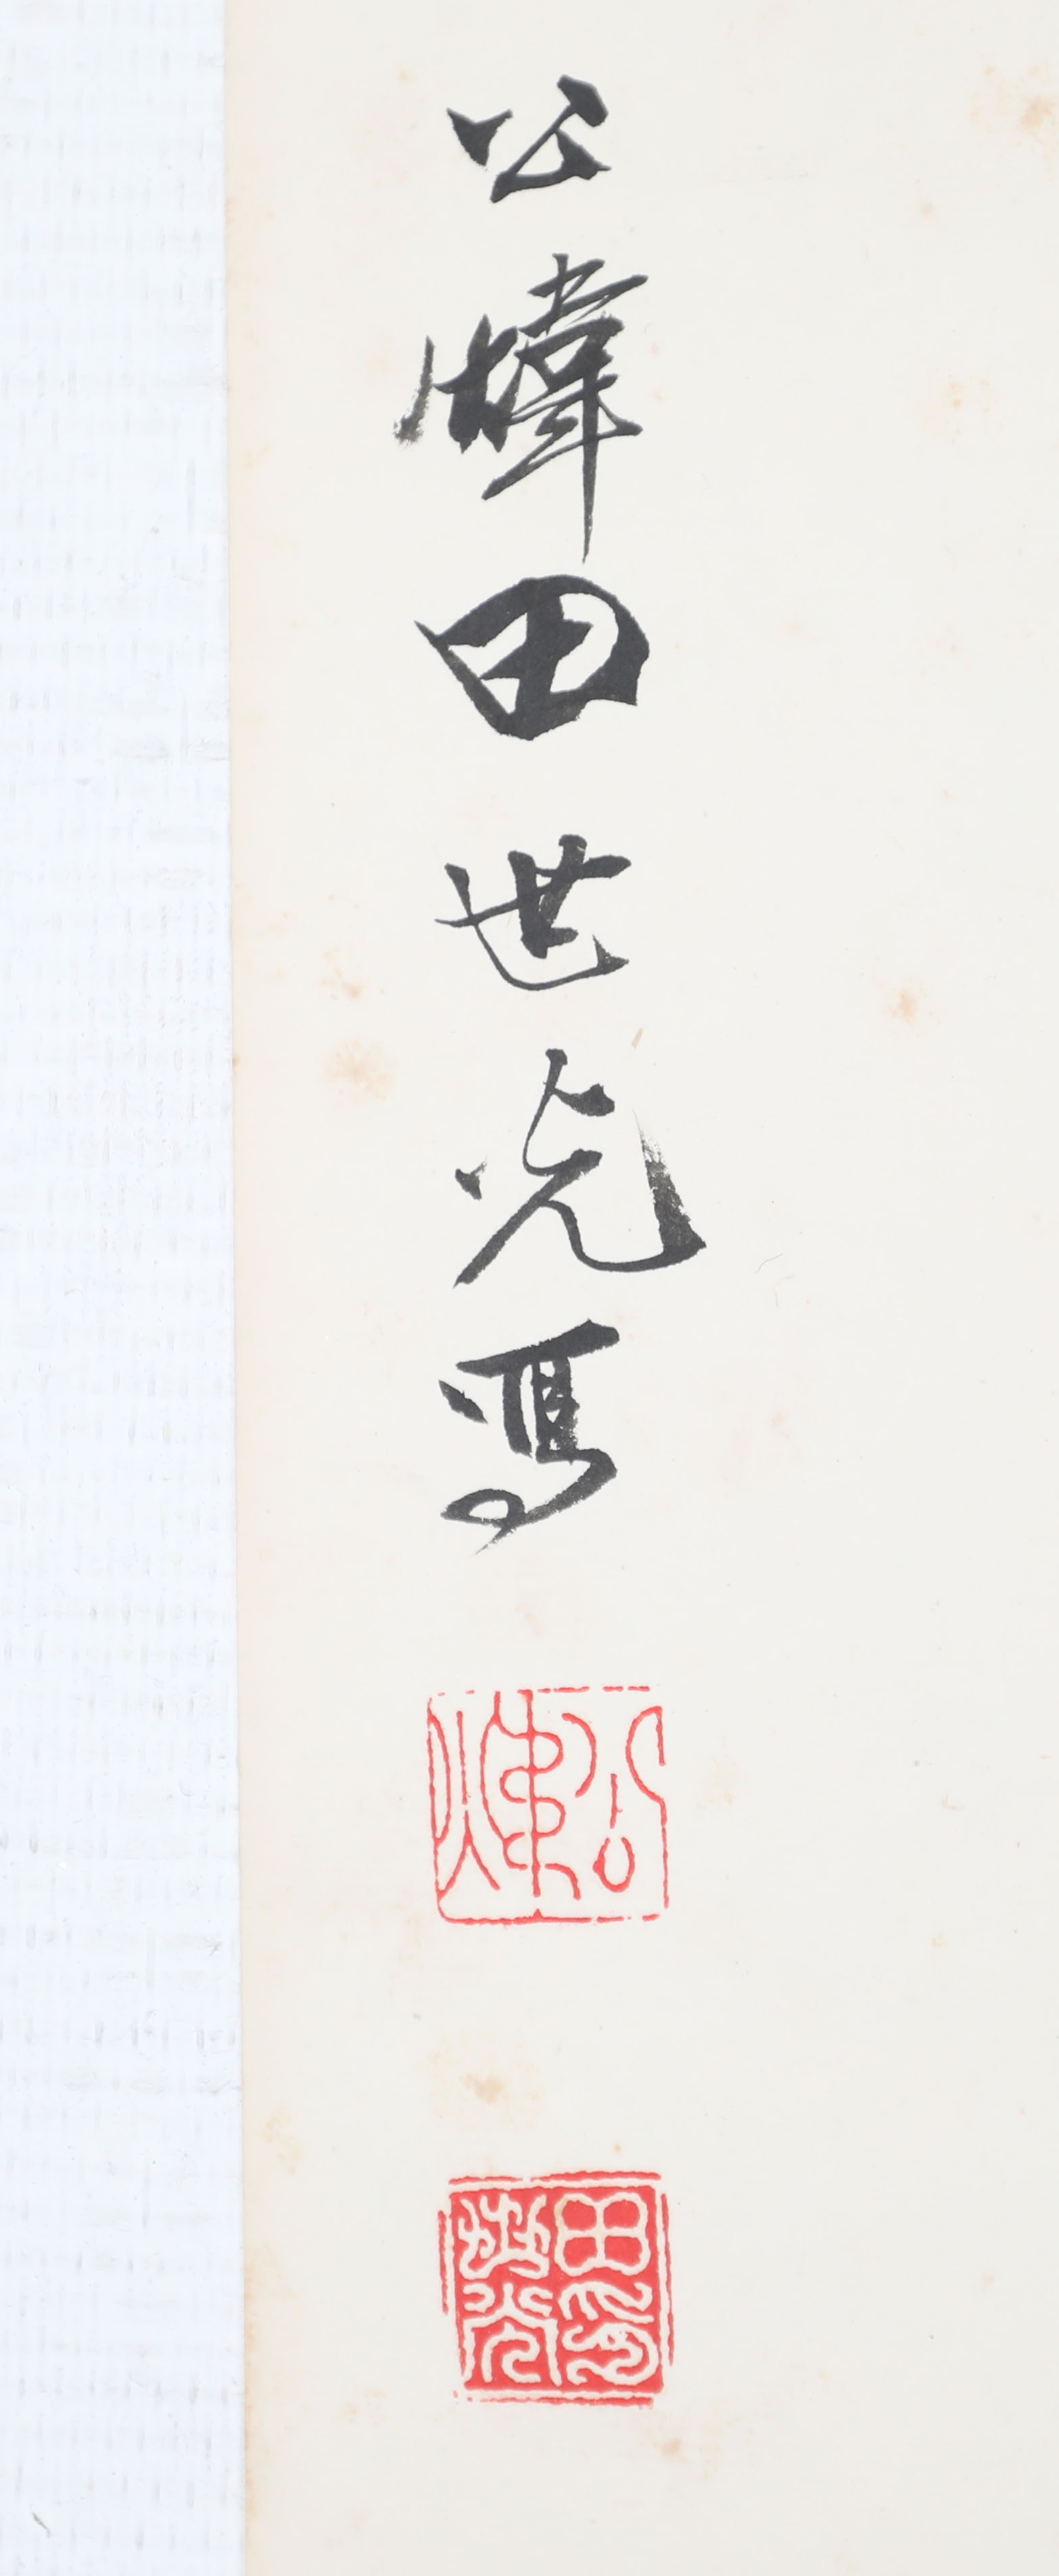 公煒田世光寫
公煒
田世光印